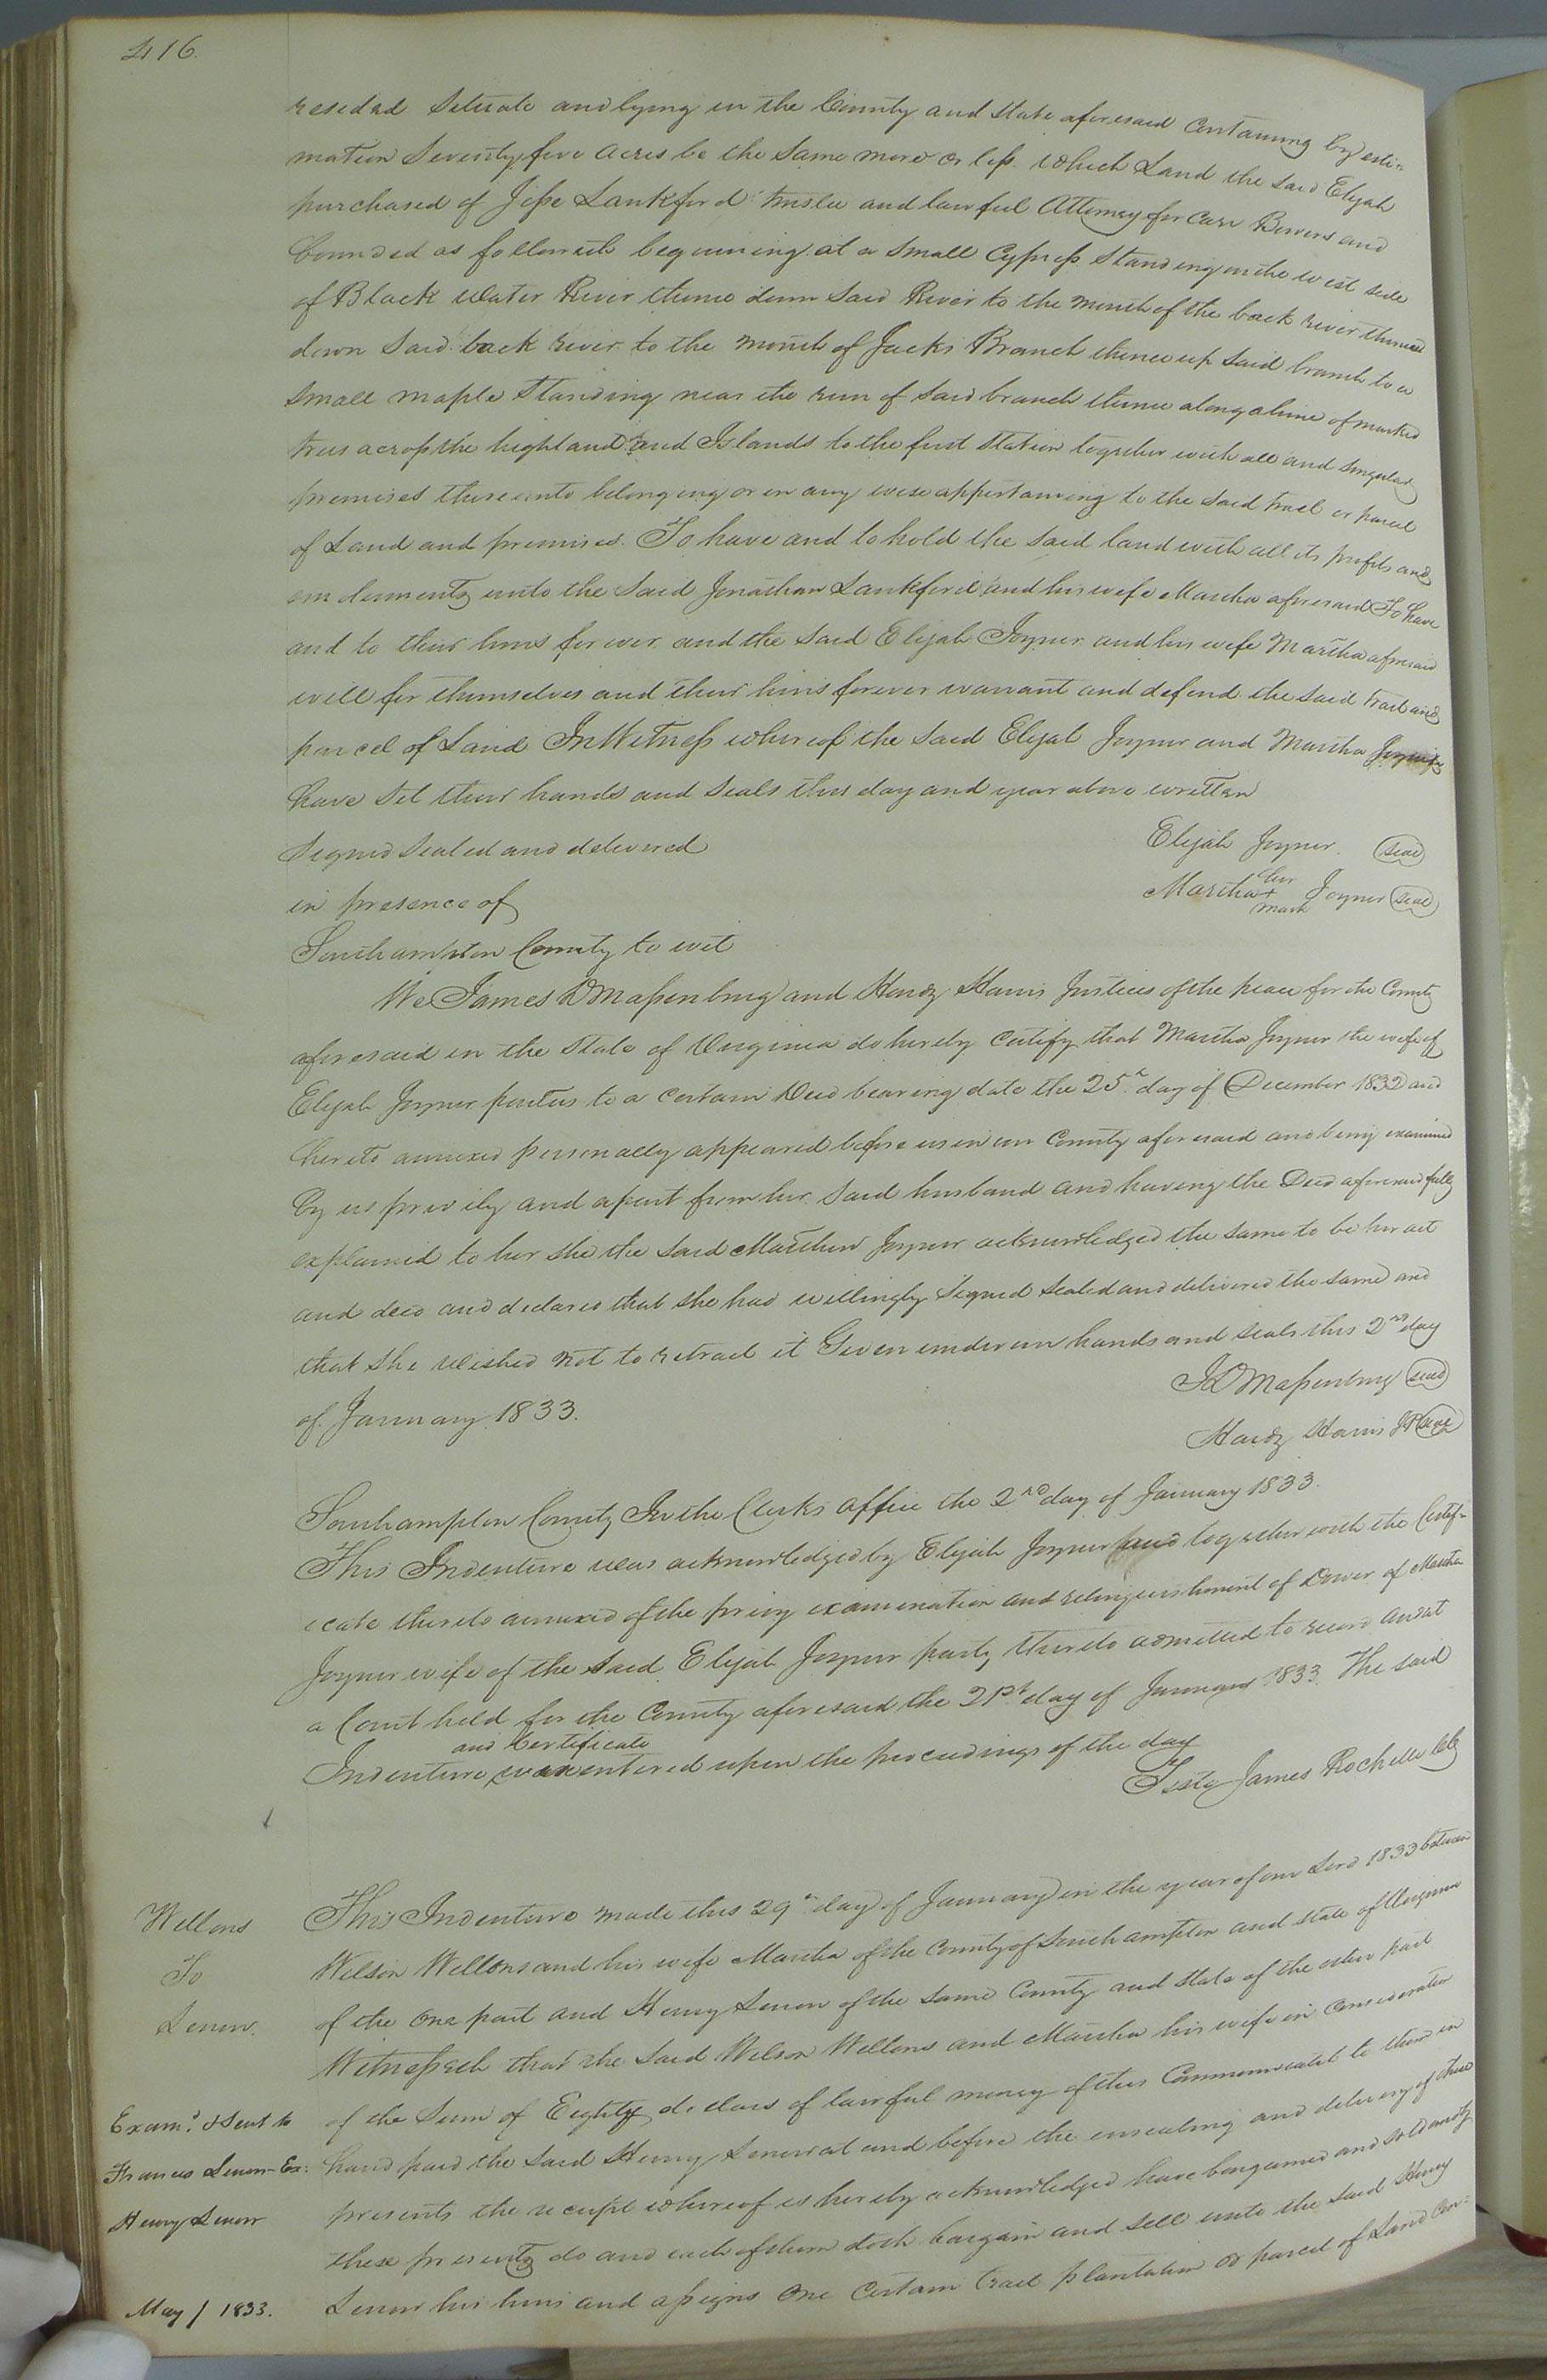 416.
resedad Situate and lying in the County and State aforesaid Containing by esti-
mation Seventy five acres be the Same more or less. which Land the said Elijah
purchased of Jesse Lankford trustee and lawful Attorney for Carr Bowers and
bounded as followeth beginning at a Small Cypress Standing on the west side
of Black Water River thence down Said River to the mouth of the back river thence
down Said back river to the mouth of Jacks Branch thence up Said branch to a
Small maple Standing near the run of Said branch thence along a line of marked
trees across the highland and Islands to the first Station together with all and Singular
premises thereunto belonging or in any wise appertaining to the Said tract or parcel
of Land and premises. To have and to hold the Said land with all its profits and
unto the Said Jonathan Lankford and his wife Martha aforesaid To have
and to their heirs forever and the Said Elijah Joyner and his wife Martha aforesaid
will for themselves and their heirs forever warrant and defend the Said tract and
parcel of Land In Witness whereof the Said Elijah Joyner and Martha Joyner
have Set their hands and Seals this day and year above written
Signed Sealed and delivered
Elijah Joyner. Seal
in presence of
Martha her + mark Joyner Seal
Southampton County to wit
We James D Massenburg and Hardy Harris Justices of the peace for the County
aforesaid in the State of Virginia do hereby Certify that Martha Joyner the wife of
Elijah Joyner parties to a Certain Deed bearing date the 25th day of December 1832 and
hereto annexed personally appeared before us in our County aforesaid and being examined
by us privily and apart from her Said husband and having the Deed aforesaid fully
explained to her She the Said Martha Joyner acknowledged the Same to be her act
and deed and declared that She had willingly Signed Sealed and delivered the Same and
that She wished not to retract it Given under our hands and Seals this 2nd day
of January 1833.
JD Massenburg Seal
Hardy Harris JP Seal
Southampton County In the Clerks office the 2nd day of January 1833.
This Indenture was acknowledged by Elijah Joyner and together with the Certif-
icate thereto annexed of the privy examination and relinquishment of Dower of Martha
Joyner wife of the Said Elijah Joyner party thereto admitted to record and at
a Court held for the County aforesaid the 21st day of January 1833. The said
and Certificate
Indenture was entered upon the proceedings of the day
Teste James Rochelle Clk
Wellons
To
Lenow.
Exam.d & Sent to
Francis Lenow Ex:
Henry Lenow
May / 1833.
This Indenture made this 29th day of January in the year of our Lord 1833 between
Wilson Wellons and his wife Martha of the County of Southampton and State of Virginia
of the one part and Henry Lenow of the Same County and State of the other part
Witnesseth that the Said Wilson Wellons and Martha his wife in Consideration
of the Sum of Eighty dollars of lawful money of this Commonwealth to them in
hand paid the Said Henry Lenow at and before the ensealing and delivery of these
presents the receipt whereof is hereby acknowledged have bargained and Sold and by
these presents do and each of them doth bargain and Sell unto the Said Henry
Lenow his heirs and assigns One Certain tract plantation or parcel of Land Con-